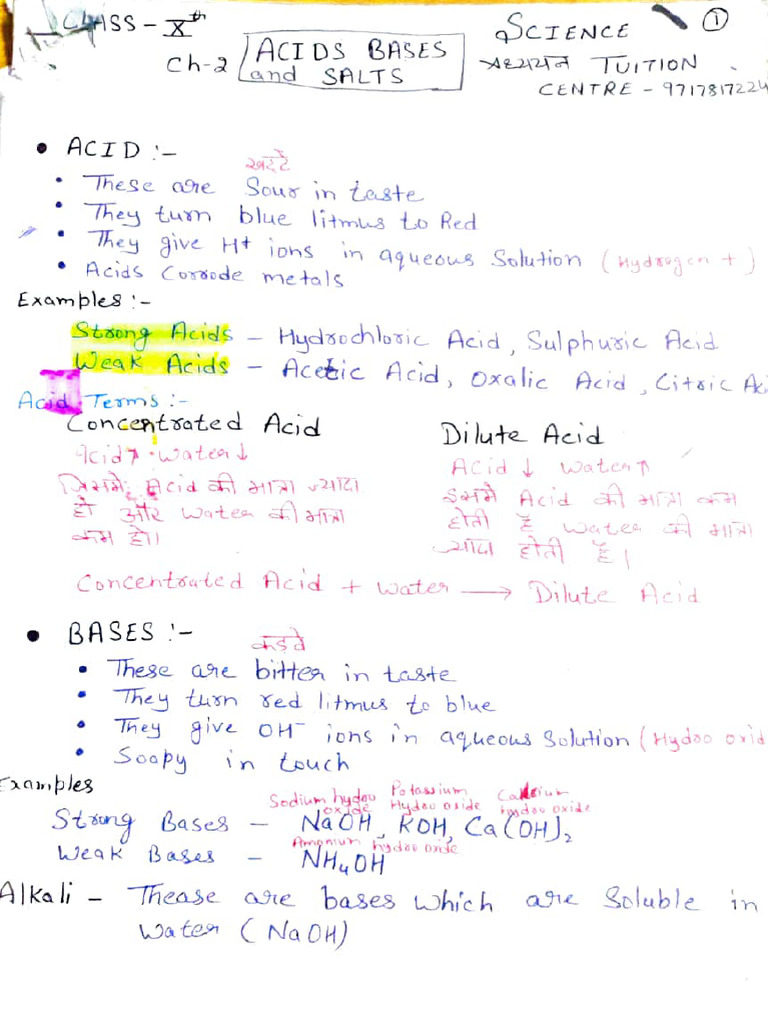 CLASS - Xth
SCIENCE ①
Ch-2 ACIDS BASES and SALTS
अध्ययन TUITION
CENTRE - 9717817224
• ACID :-
खट्टे
• These are Sour in taste
• They turn blue litmus to Red
• They give H+ ions in aqueous Solution (Hydrogen +)
• Acids Corrode metals
Examples :-
Strong Acids - Hydrochloric Acid, Sulphuric Acid
Weak Acids - Acetic Acid, Oxalic Acid, Citric Aci
Acid Terms :-
Concentrated Acid
Acid↑ Water↓
जिसमे Acid की मात्रा ज्यादा
हो और Water की मात्रा
कम हो।
Dilute Acid
Acid ↓ Water↑
इसमे Acid की मात्रा कम
होती है Water की मात्रा
ज्यादा होती है।
Concentrated Acid + Water → Dilute Acid
• BASES :-
कड़वे
• These are bitter in taste
• They turn red litmus to blue
• They give OH⁻ ions in aqueous Solution (Hydoo oxid
• Soapy in touch
Examples
Sodium hydoo oxide Potassium Hydoo oxide Calcium hydoo oxide
Strong Bases - NaOH, KOH, Ca(OH)₂
Amonium hydoo oxide
Weak Bases - NH₄OH
Alkali - Thease are bases which are Soluble in
Water (NaOH)